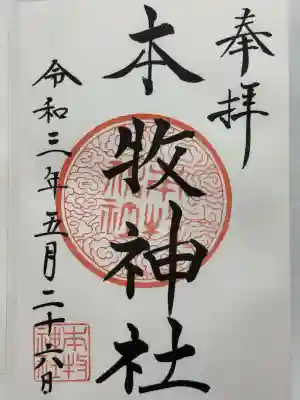 奉拝
本牧神社
令和三年五月二十六日
本牧
神社